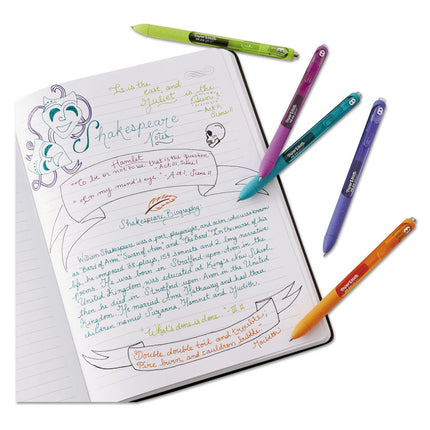 It is the
east, and
Juliet is the
Sun
Act II
Scene II
Shakespeare
Notes
Hamlet
"To be or not to be: that is the question."
Act III, Scene I
"In my mind's eye". Act I, Scene II
Shakespeare Biography:
William Shakespeare was a poet, playwright, and actor who was known
as "Bard of Avon", "Swan of Avon", and "The Bard". In the course of his
life he composed 38 plays, 154 sonnets and 2 long narrative
poems. He was born in Stratford-upon-Avon in the
United Kingdom, was educated at King's New School,
then he died in Stratford-upon-Avon in the United
Kingdom. He married Anne Hathaway and had three
children named Susanna, Hamnet and Judith.
"What's done is done." - III.II
"Double, double toil and trouble,
Fire burn, and cauldron bubble"
Macbeth